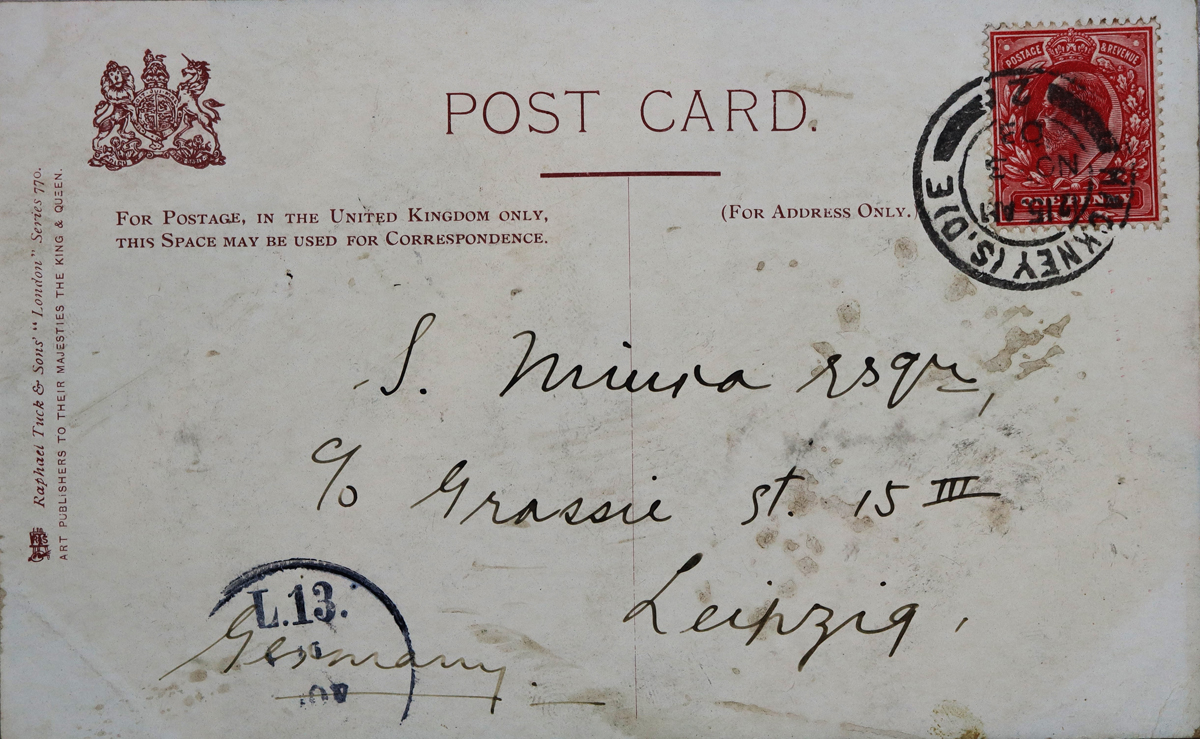 POST CARD.
FOR POSTAGE, IN THE UNITED KINGDOM ONLY,
THIS SPACE MAY BE USED FOR CORRESPONDENCE.
(FOR ADDRESS ONLY.
POSTAGE & REVENUE
ONE PENNY
CKNEY (S.O) E
Raphael Tuck & Sons' "London" Series 770.
ART PUBLISHERS TO THEIR MAJESTIES THE KING & QUEEN.
S. Miura Esqr,
c/o Grassie St. 15 III
Leipzig,
Germany.
L.13.